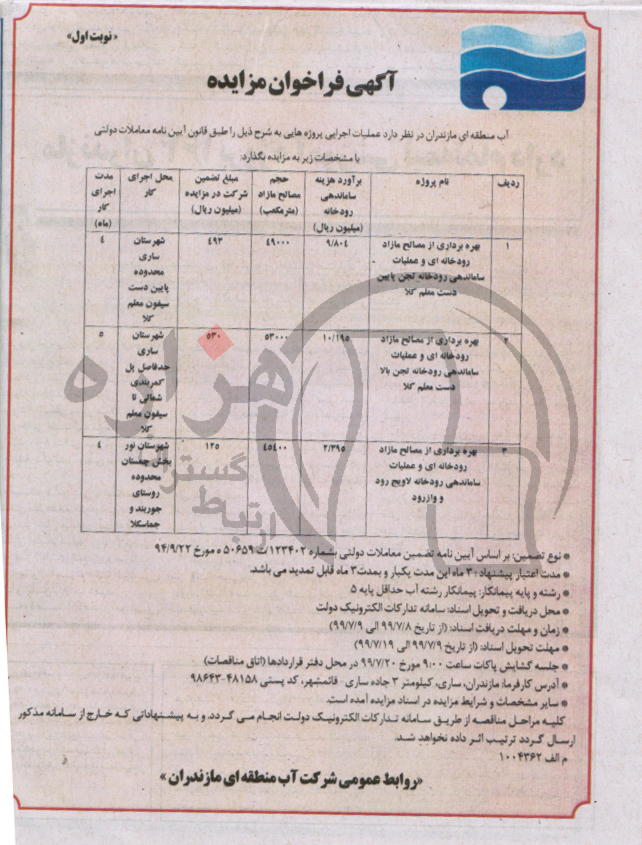 «نوبت اول»
آگهی فراخوان مزایده
آب منطقه ای مازندران در نظر دارد عملیات اجرایی پروژه هایی به شرح ذیل را طبق قانون آیین نامه معاملات دولتی
با مشخصات زیر به مزایده بگذارد:
ردیف
نام پروژه
برآورد هزینه
ساماندهی
رودخانه
(میلیون ریال)
حجم
مصالح مازاد
(مترمکعب)
مبلغ تضمین
شرکت در مزایده
(میلیون ریال)
محل اجرای
کار
مدت
اجرای
کار
(ماه)
۱
بهره برداری از مصالح مازاد
رودخانه ای و عملیات
ساماندهی رودخانه تجن پایین
دست معلم کلا
۹/۸۰۴
۴۹۰۰۰
۴۹۳
شهرستان
ساری
محدوده
پایین دست
سیفون معلم
کلا
۴
۲
بهره برداری از مصالح مازاد
رودخانه ای و عملیات
ساماندهی رودخانه تجن بالا
دست معلم کلا
۱۰/۱۹۵
۵۳۰۰۰
۵۳۰
شهرستان
ساری
حدفاصل پل
کمربندی
شمالی تا
سیفون معلم
کلا
۵
۳
بهره برداری از مصالح مازاد
رودخانه ای و عملیات
ساماندهی رودخانه لاویج رود
و وازرود
۲/۳۹۵
۴۵۴۰۰
۱۲۵
شهرستان نور
بخش چمستان
محدوده
روستای
جوربند و
جماسکلا
۴
هزاره
گسترش
ارتباط
● نوع تضمین بر اساس آیین نامه تضمین معاملات دولتی بشماره ۱۲۳۴۰۲/ت۵۰۶۵۹ ه مورخ ۹۴/۹/۲۲
● مدت اعتبار پیشنهاد: ۳ ماه این مدت یکبار و بمدت ۳ ماه قابل تمدید می باشد.
● رشته و پایه پیمانکار: پیمانکار رشته آب حداقل پایه ۵
● محل دریافت و تحویل اسناد: سامانه تدارکات الکترونیک دولت
● زمان و مهلت دریافت اسناد: (از تاریخ ۹۹/۷/۸ الی ۹۹/۷/۹)
● مهلت تحویل اسناد: (از تاریخ ۹۹/۷/۹ الی ۹۹/۷/۱۹)
● جلسه گشایش پاکات ساعت ۹:۰۰ مورخ ۹۹/۷/۲۰ در محل دفتر قراردادها (اتاق مناقصات)
● آدرس کارفرما: مازندران، ساری، کیلومتر ۳ جاده ساری - قائمشهر، کد پستی ۴۸۱۵۸-۹۸۶۴۳
● سایر مشخصات و شرایط مزایده در اسناد مزایده آمده است.
کلیه مراحل مناقصه از طریق سامانه تدارکات الکترونیک دولت انجام می گردد. و به پیشنهاداتی که خارج از سامانه مذکور
ارسال گردد ترتیب اثر داده نخواهد شد.
م الف ۱۰۰۴۳۶۲
«روابط عمومی شرکت آب منطقه ای مازندران»